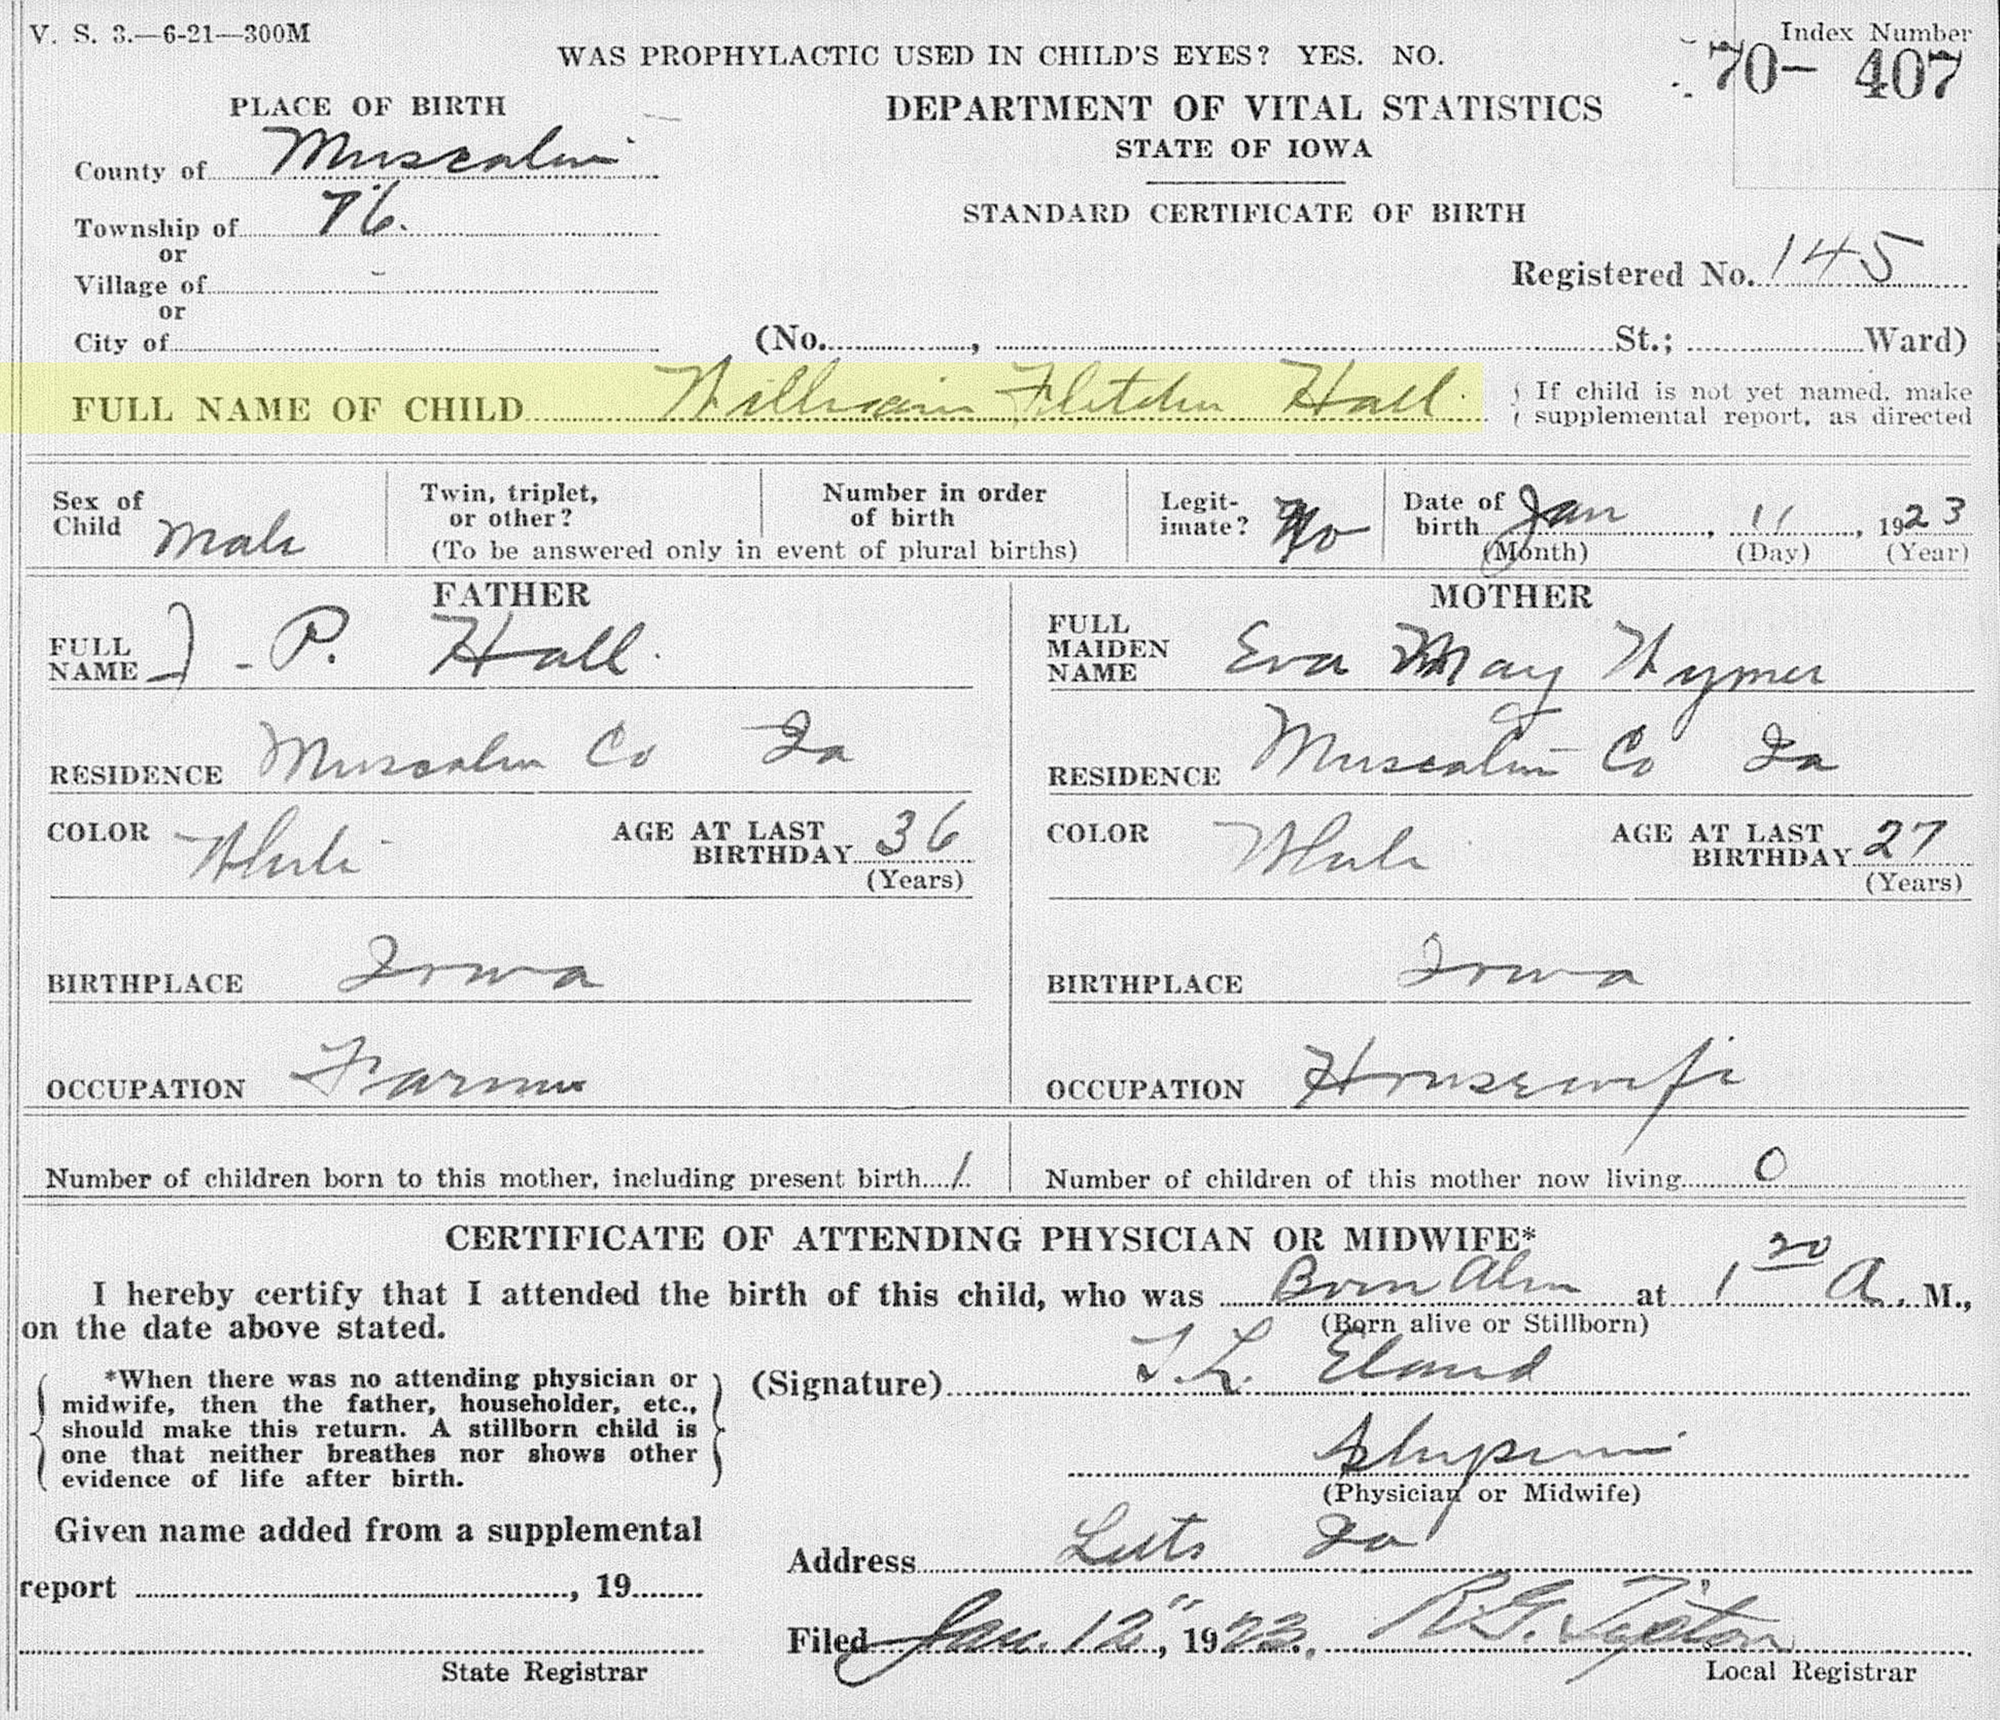 V. S. 3.—6-21—300M
Index Number
WAS PROPHYLACTIC USED IN CHILD'S EYES? YES. NO.
70- 407
PLACE OF BIRTH
DEPARTMENT OF VITAL STATISTICS
STATE OF IOWA
County of Muscatine
STANDARD CERTIFICATE OF BIRTH
Township of 76.
or
Village of
Registered No. 145
or
City of
(No. , St.; Ward)
FULL NAME OF CHILD William Fletcher Hall.
If child is not yet named, make
supplemental report, as directed
Sex of
Child Male
Twin, triplet,
or other?
Number in order
of birth
(To be answered only in event of plural births)
Legit-
imate? No
Date of
birth Jan , 11 , 1923
(Month) (Day) (Year)
FATHER
FULL
NAME J - P. Hall.
RESIDENCE Muscatine Co Ia
COLOR White
AGE AT LAST
BIRTHDAY 36
(Years)
BIRTHPLACE Iowa
OCCUPATION Farmer
MOTHER
FULL
MAIDEN
NAME Eva May Wymer
RESIDENCE Muscatine Co Ia
COLOR White
AGE AT LAST
BIRTHDAY 27
(Years)
BIRTHPLACE Iowa
OCCUPATION Housewife
Number of children born to this mother, including present birth 1
Number of children of this mother now living 0
CERTIFICATE OF ATTENDING PHYSICIAN OR MIDWIFE*
I hereby certify that I attended the birth of this child, who was Born Alive at 1 20 A. M.,
on the date above stated.
(Born alive or Stillborn)
*When there was no attending physician or
midwife, then the father, householder, etc.,
should make this return. A stillborn child is
one that neither breathes nor shows other
evidence of life after birth.
(Signature)
(Physician or Midwife)
Given name added from a supplemental
report , 19
State Registrar
Address Letts Ia
Filed Jan. 12", 1923. R.G. Tipton
Local Registrar